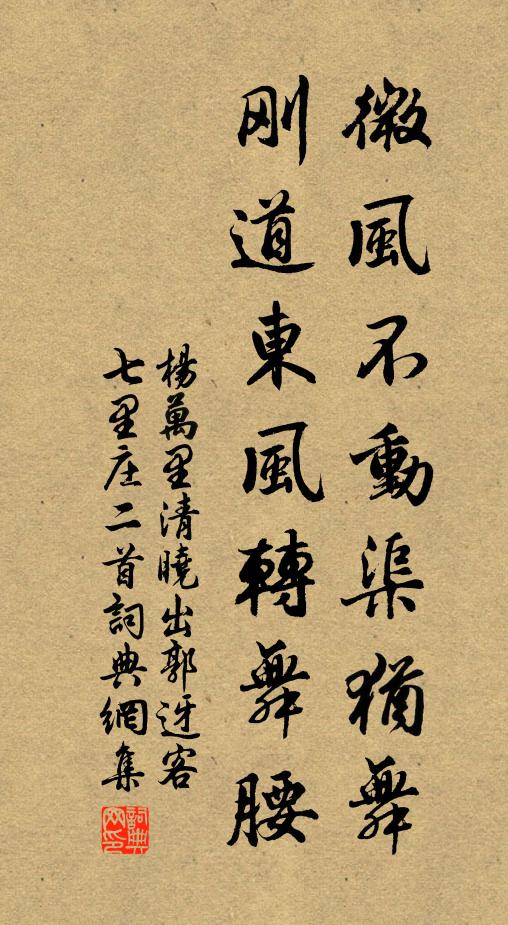 微風不動渠猶舞
剛道東風轉舞腰
楊萬里清曉出郭迓客
七里庄二首詞典網集
詞典网印